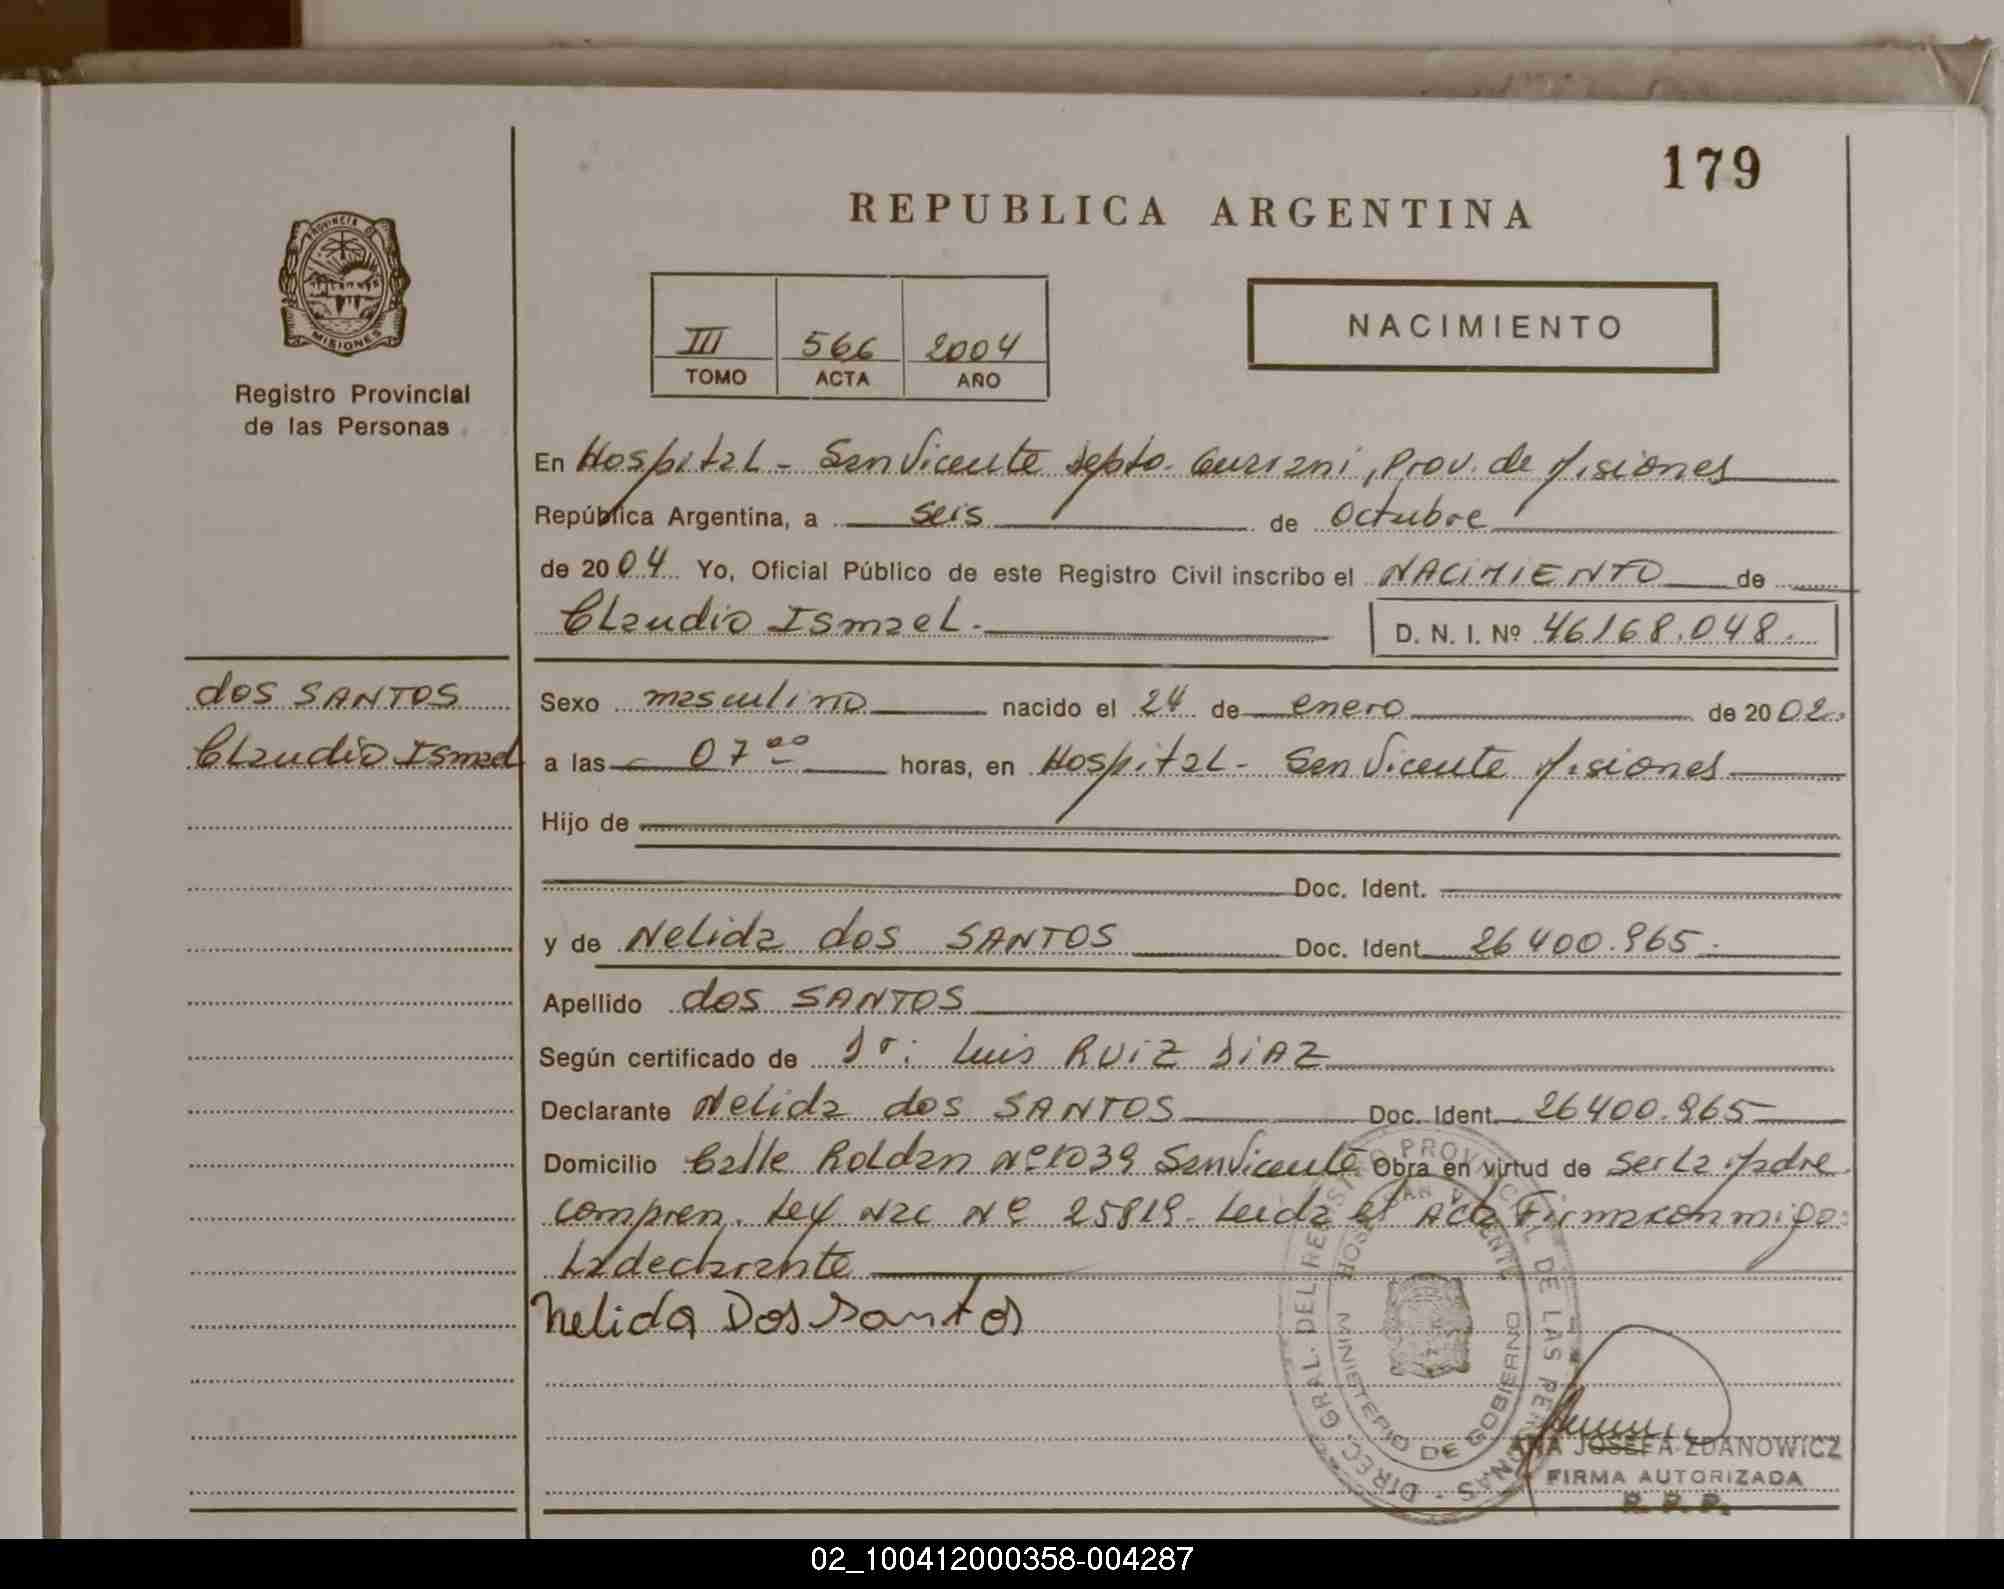 179
REPUBLICA ARGENTINA
PROVINCIA DE
MISIONES
Registro Provincial
de las Personas
III 566 2004
TOMO ACTA AÑO
NACIMIENTO
En Hospital - San Vicente Depto. Guarani, Prov. de Misiones
República Argentina, a seis de Octubre
de 2004 Yo, Oficial Público de este Registro Civil inscribo el NACIMIENTO de
Claudio Ismael.
D. N. I. Nº 46168.048.
dos SANTOS
Claudio Ismael
Sexo masculino nacido el 24 de enero de 2002.
a las 07 00 horas, en Hospital - San Vicente Misiones
Hijo de
Doc. Ident.
y de Nelida dos SANTOS Doc. Ident. 26400.965.
Apellido dos SANTOS
Según certificado de Dr: Luis RUIZ DIAZ
Declarante Nelida dos SANTOS Doc. Ident. 26400.965
Domicilio Calle Roldan Nº1039 San Vicente Obra en virtud de ser la Madre
compren. Ley Nac Nº 25819. Leida el Acta Firma conmigo
La declarante
Nelida Dos Santos
DIREC. GRAL. DEL REGISTRO PROVINCIAL DE LAS PERSONAS
HOSP. SAN VICENTE
MINISTERIO DE GOBIERNO
ANA JOSEFA ZDANOWICZ
FIRMA AUTORIZADA
R. P. P.
02_100412000358-004287